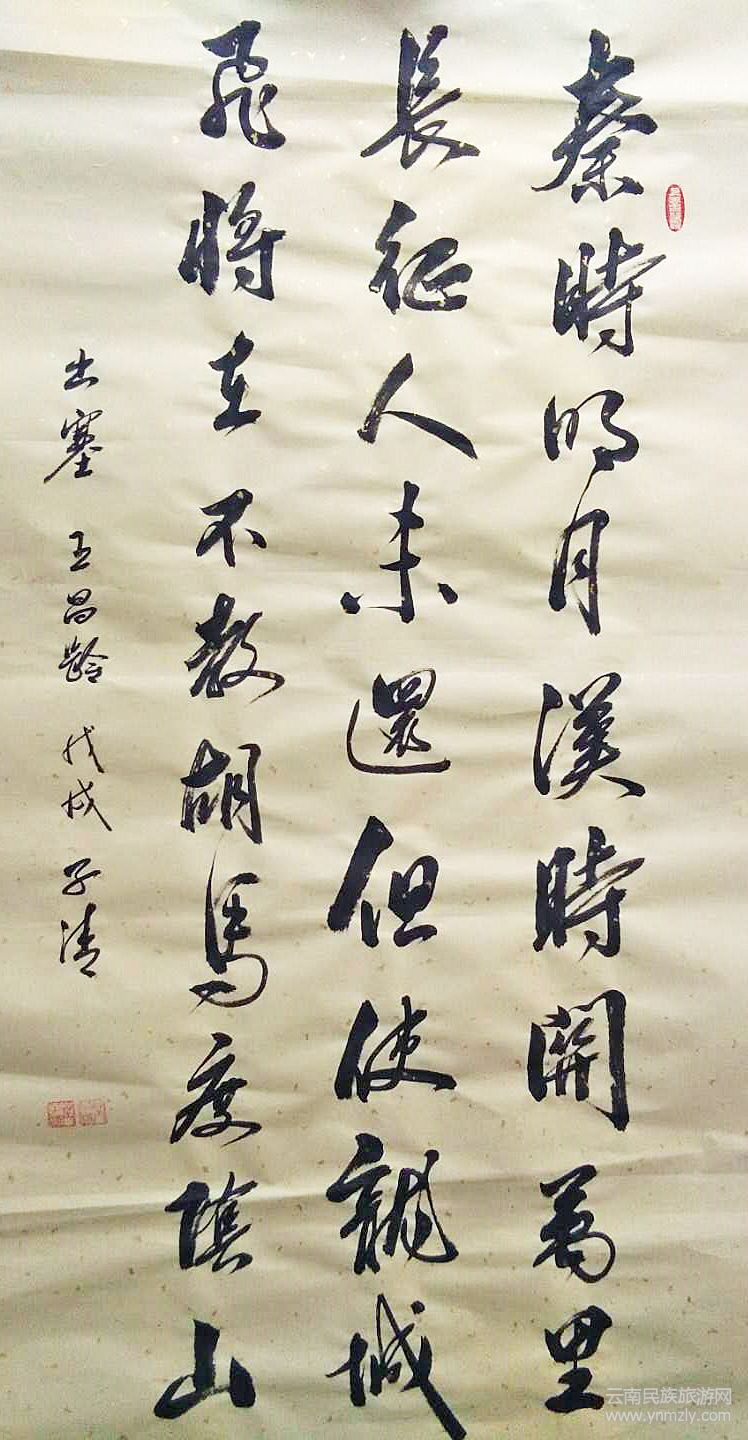 秦時明月漢時關萬里
長征人未還但使龍城
飛將在不教胡馬度陰山
出塞 王昌龄 戊戌 子清
云南民族旅游网
www.ynmzly.com